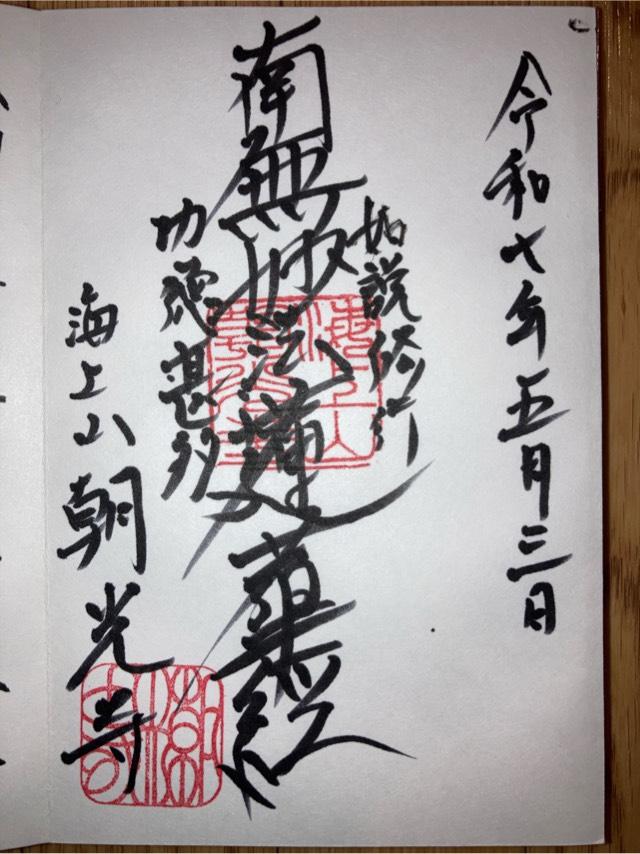 令和七年五月三日
如説修行
南無妙法蓮華経
功徳甚多
海上山朝光寺